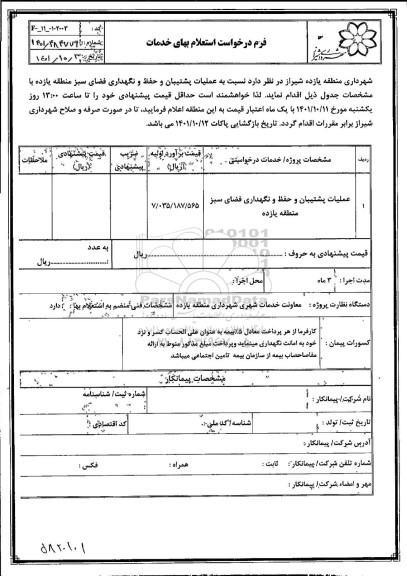 فرم درخواست استعلام بهای خدمات
شهرداری منطقه یازده شیراز در نظر دارد نسبت به عملیات پشتیبان و حفظ و نگهداری فضای سبز منطقه یازده با
مشخصات جدول ذیل اقدام نماید. لذا خواهشمند است حداقل قیمت پیشنهادی خود را تا ساعت ۱۳:۰۰ روز
یکشنبه مورخ ۱۴۰۱/۱۰/۱۱ با یک ماه اعتبار قیمت به این منطقه اعلام فرمایید، تا در صورت صرفه و صلاح شهرداری
شیراز برابر مقررات اقدام گردد. تاریخ بازگشایی پاکات ۱۴۰۱/۱۰/۱۲ می باشد.
ردیف مشخصات پروژه/ خدمات درخواستی قیمت برآورد اولیه (ریال) ضریب پیشنهادی قیمت پیشنهادی (ریال) ملاحظات
۱ عملیات پشتیبان و حفظ و نگهداری فضای سبز منطقه یازده ۷/۰۳۵/۱۸۷/۵۶۵
قیمت پیشنهادی به حروف : ریال به عدد : ریال
مدت اجرا : ۳ ماه محل اجرا :
دستگاه نظارت پروژه : معاونت خدمات شهری شهرداری منطقه یازده مشخصات فنی منضم به استعلام بها : دارد
کسورات پیمان : کارفرما از هر پرداخت معادل ۵٪ بیمه به عنوان علی الحساب کسر و نزد
خود به امانت نگهداری مینماید وپرداخت مبلغ مذکور منوط به ارائه
مفاصاحساب بیمه از سازمان بیمه تامین اجتماعی میباشد
مشخصات پیمانکار
نام شرکت/ پیمانکار : شماره ثبت/ شناسنامه
تاریخ ثبت/ تولد : شناسه/ کد ملی : کد اقتصادی :
آدرس شرکت/ پیمانکار :
شماره تلفن شرکت/ پیمانکار : ثابت : همراه : فکس :
مهر و امضاء شرکت/ پیمانکار :